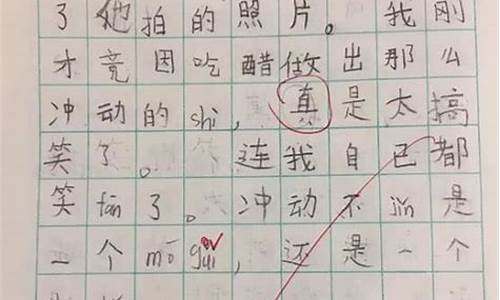 了他拍的照片。我刚
才竟因吃醋做出那么
冲动的shì,真是太搞
笑了。连我自已都
笑fān了。冲动不jǐn是
一个mó guǐ,还是一个